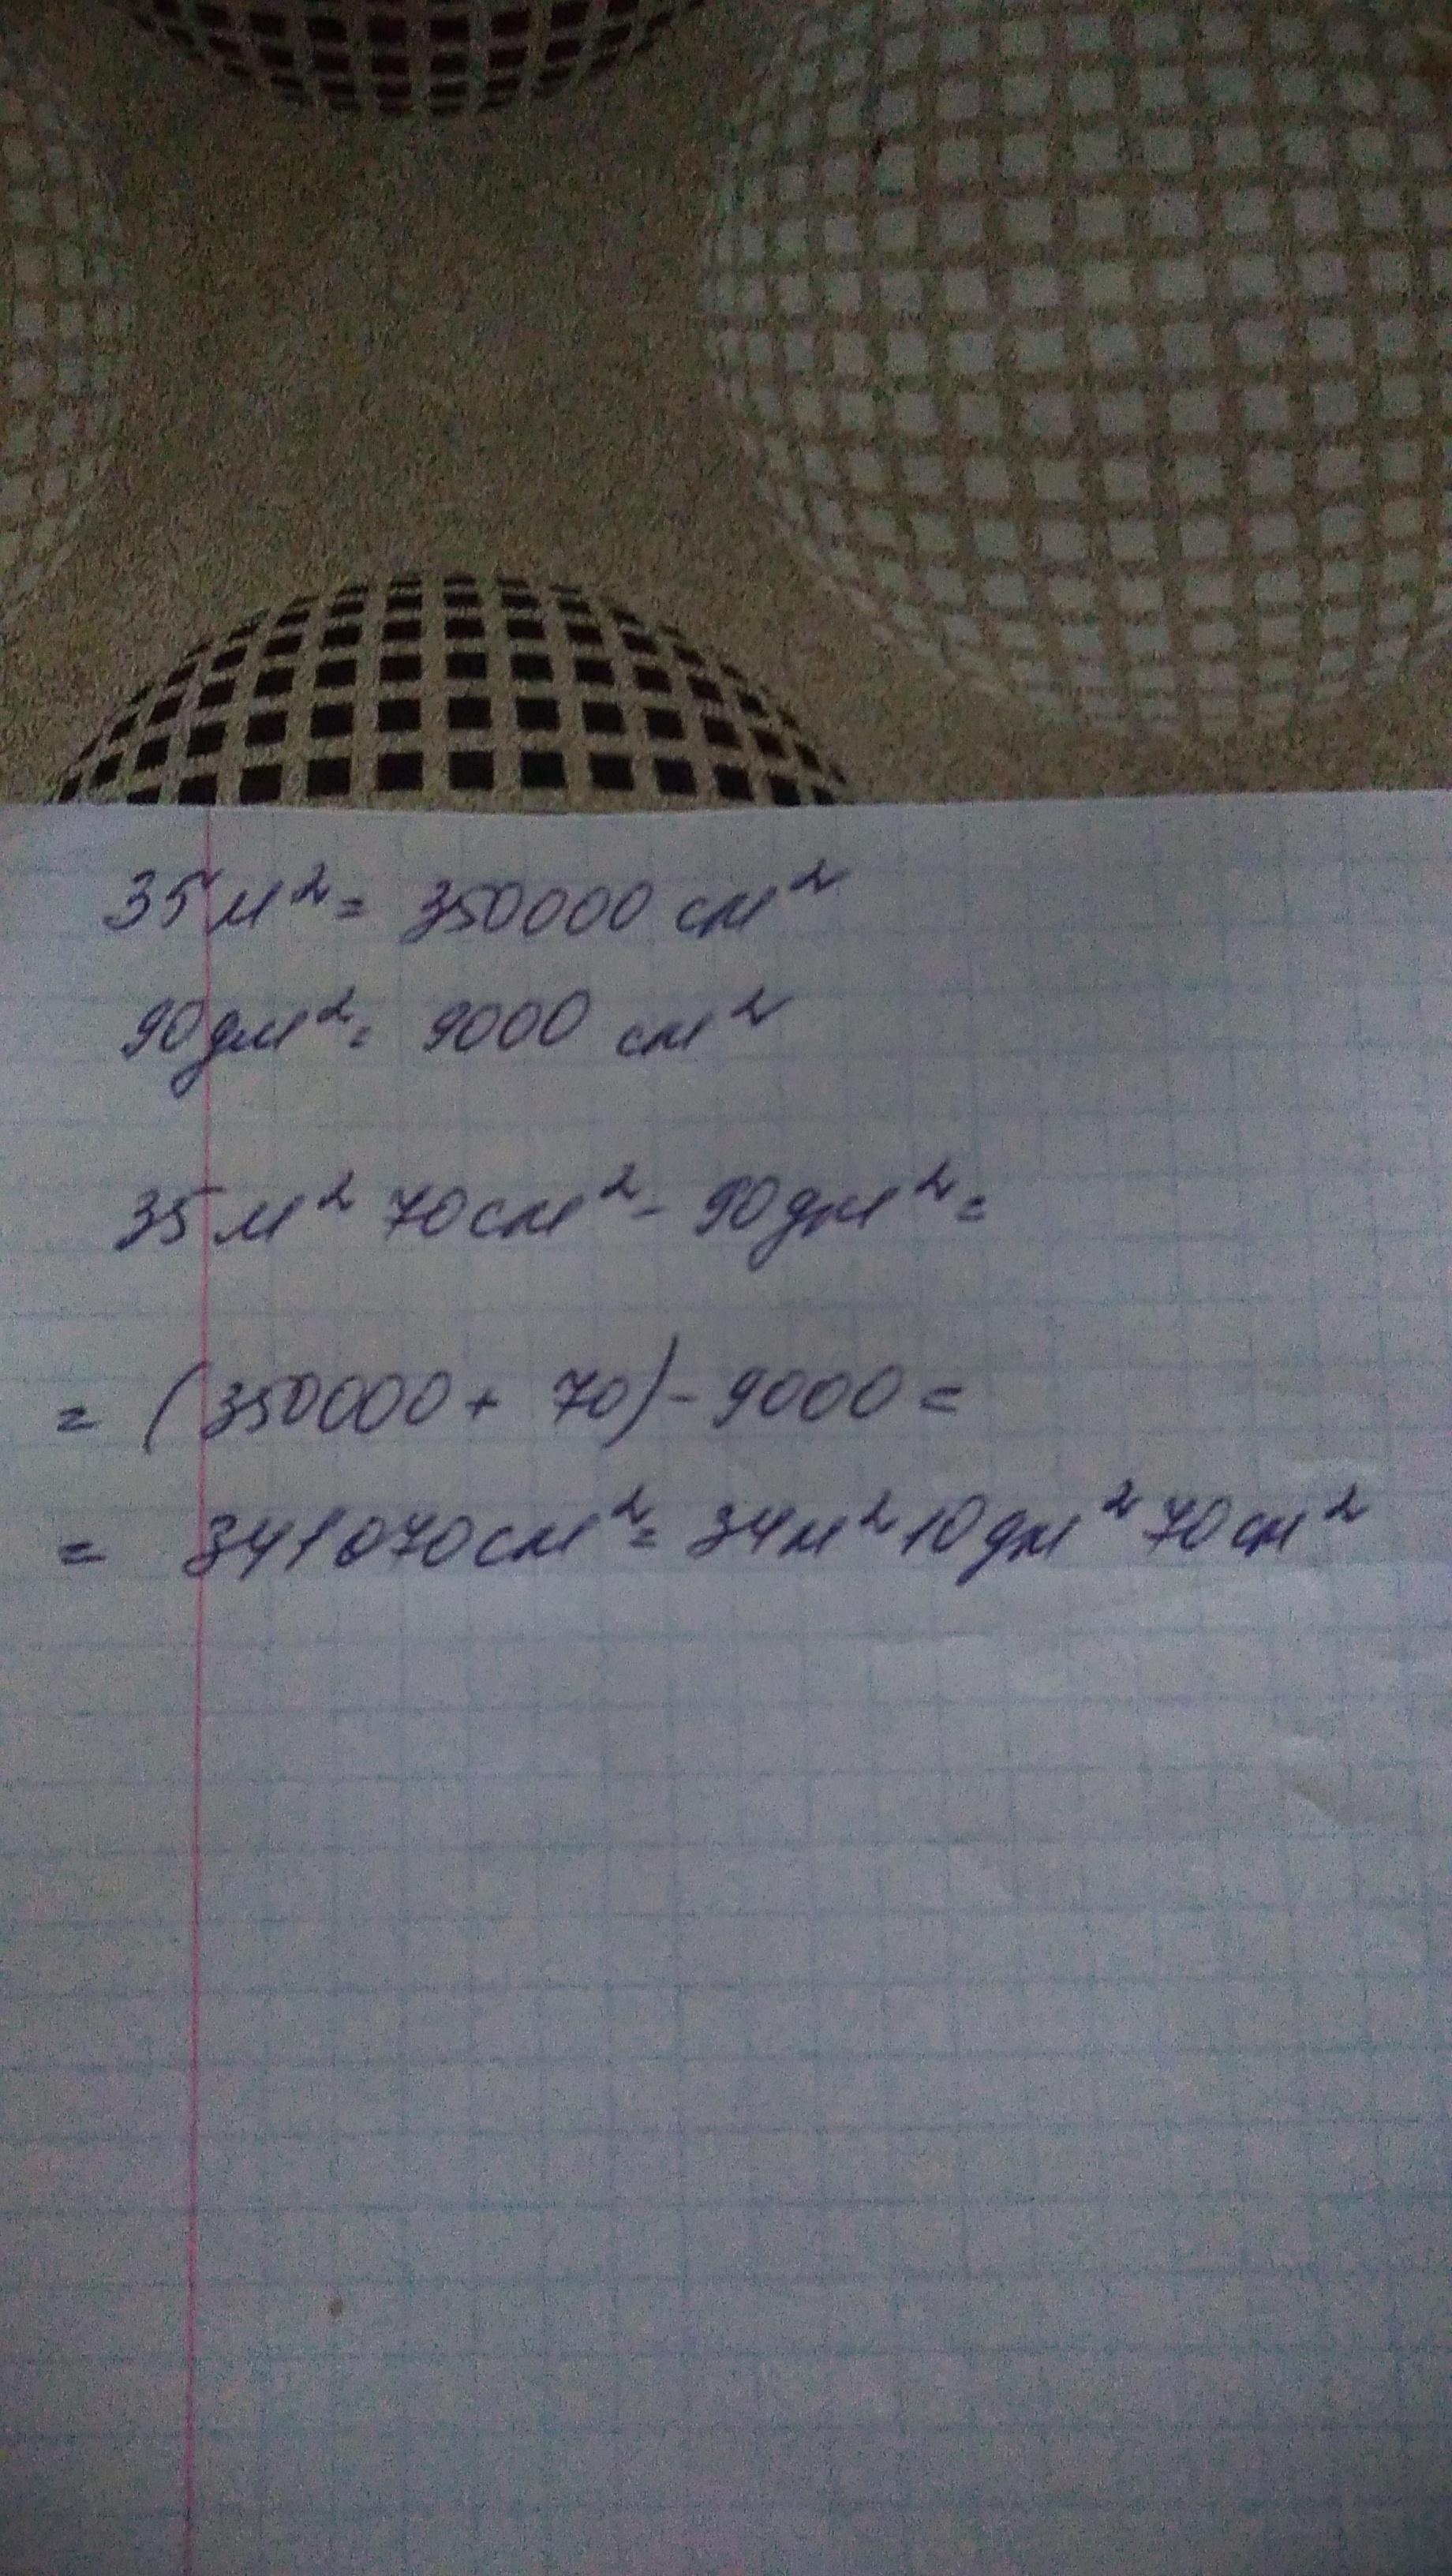 35 м² = 350000 см²
90 дм² = 9000 см²
35 м² 70 см² - 90 дм² =
= (350000 + 70) - 9000 =
= 341070 см² = 34 м² 10 дм² 70 см²